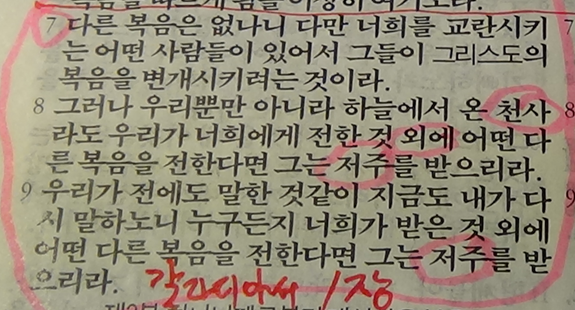 7 다른 복음은 없나니 다만 너희를 교란시키
는 어떤 사람들이 있어서 그들이 그리스도의
복음을 변개시키려는 것이라.
8 그러나 우리뿐만 아니라 하늘에서 온 천사
라도 우리가 너희에게 전한 것 외에 어떤 다
른 복음을 전한다면 그는 저주를 받으리라.
9 우리가 전에도 말한 것같이 지금도 내가 다
시 말하노니 누구든지 너희가 받은 것 외에
어떤 다른 복음을 전한다면 그는 저주를 받
으리라. 갈라디아서 1장